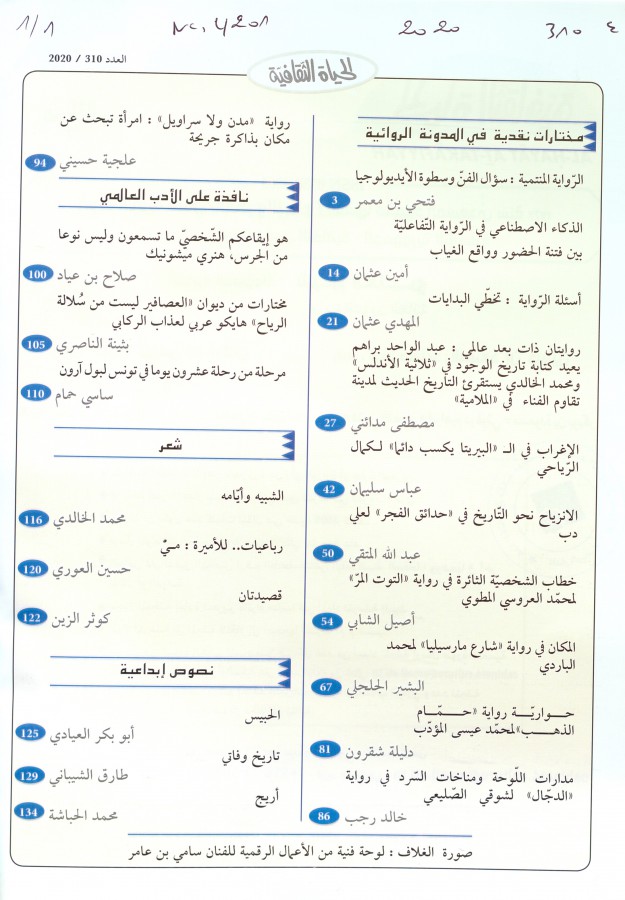 1/1
Nc. 4201
2020
310 ع
العدد 310 / 2020
الحياة الثقافية
مختارات نقدية في المدونة الروائية
الرّواية المنتمية : سؤال الفنّ وسطوة الأيديولوجيا
فتحي بن معمر 3
الذكاء الاصطناعي في الرّواية التّفاعليّة
بين فتنة الحضور وواقع الغياب
أمين عثمان 14
أسئلة الرّواية : تخطّي البدايات
المهدي عثمان 21
روايتان ذات بعد عالمي : عبد الواحد براهم
يعيد كتابة تاريخ الوجود في «ثلاثية الأندلس»
ومحمد الخالدي يستقرئ التاريخ الحديث لمدينة
تقاوم الفناء في «الملامية»
مصطفى مدائني 27
الإغراب في الـ «البيريتا يكسب دائما» لـكمال
الرّياحي
عباس سليمان 42
الانزياح نحو التّاريخ في «حدائق الفجر» لعلي
دب
عبد الله المتقي 50
خطاب الشخصيّة الثائرة في رواية «التوت المرّ»
لمحمّد العروسي المطوي
أصيل الشابي 54
المكان في رواية «شارع مارسيليا» لمحمد
الباردي
البشير الجلجلي 67
حـــواريـّـــة رواية «حـــمّـــام
الذهـــب»لمحمّد عيسى المؤدّب
دليلة شقرون 81
مدارات اللّوحة ومناخات السّرد في رواية
«الدجّال» لشوقي الصّليعي
خالد رجب 86
رواية «مدن ولا سراويل» : امرأة تبحث عن
مكان بذاكرة جريحة
علجية حسيني 94
نافذة على الأدب العالمي
هو إيقاعكم الشّخصيّ ما تسمعون وليس نوعا
من الجرس، هنري ميشونيك
صلاح بن عياد 100
مختارات من ديوان «العصافير ليست من سُلالة
الرياح» هايكو عربي لعذاب الركابي
بثينة الناصري 105
مرحلة من رحلة عشرون يوما في تونس لبول آرون
ساسي حمام 110
شعر
الشبيه وأيّامه
محمد الخالدي 116
رباعيات.. للأميرة : مـيّ
حسين العوري 120
قصيدتان
كوثر الزين 122
نصوص إبداعية
الحبيس
أبو بكر العيادي 125
تاريخ وفاتي
طارق الشيباني 129
أريج
محمد الحباشة 134
صورة الغلاف : لوحة فنية من الأعمال الرقمية للفنان سامي بن عامر